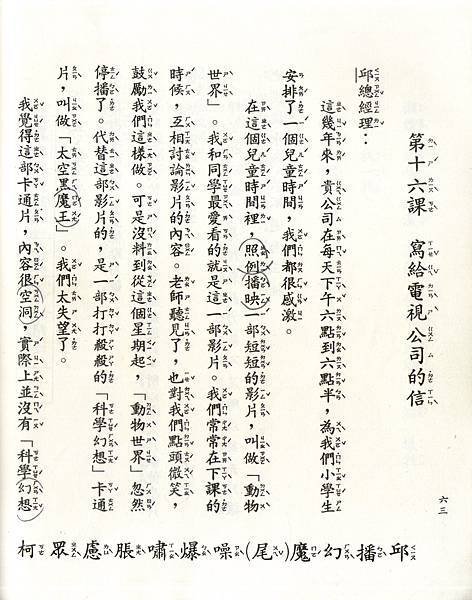 第十六課　寫給電視公司的信
邱總經理：
這幾年來，貴公司在每天下午六點到六點半，為我們小學生
安排了一個兒童時間，我們都很感激。
在這個兒童時間裡，照例播映一部短短的影片，叫做「動物
世界」。我和同學最愛看的就是這一部影片。我們常常在下課的
時候，互相討論影片的內容。老師聽見了，也對我們點頭微笑，
鼓勵我們這樣做。可是沒料到從這個星期起，「動物世界」忽然
停播了。代替這部影片的，是一部打打殺殺的「科學幻想」卡通
片，叫做「太空黑魔王」。我們太失望了。
我覺得這部卡通片，內容很空洞，實際上並沒有「科學幻想
六三
邱播幻魔(尾)噪爆嘯脹慮眾柯